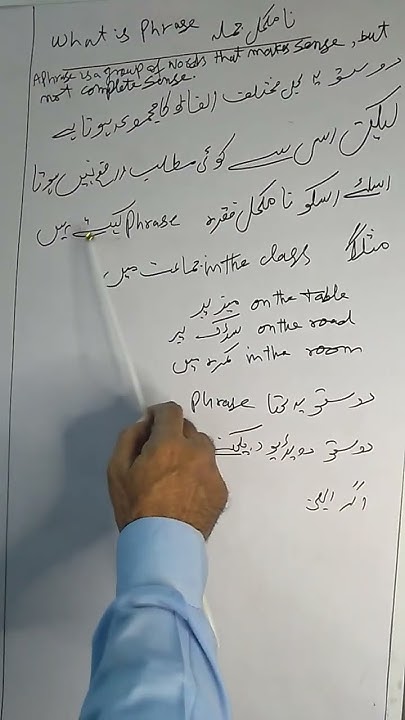 What is Phrase نا مکمل جملہ
A Phrase is a group of words that makes sense, but
not complete sense.
دوستو یہ مختلف الفاظ کا مجموعہ ہوتا ہے
لیکن اس سے کوئی مطلب نہیں ہوتا
اسلئے اسکو نا مکمل فقرہ Phrase کہتے ہیں
مثلاً in the class جماعت میں
on the table میز پر
on the road سڑک پر
in the room کمرہ میں
دوستو یہ تھا Phrase
دوستو
اگر